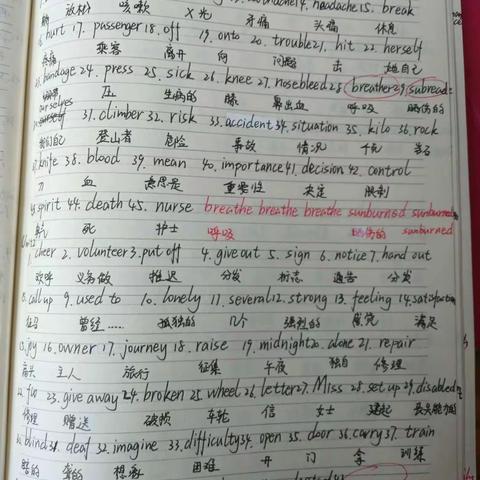 toothache14. headache15. break
放松 咳嗽 X光 牙痛 头痛 休息
16. hurt 17. passenger 18. off 19. onto 20. trouble21. hit 22. herself
疼痛 乘客 离开 向 问题 击 她自己
23. bandage 24. press 25. sick 26. knee 27. nosebleed 28. breather29. subread
压 生病的 膝 鼻出血 呼吸 晒伤的
ourselves 31. climber 32. risk 33. accident 34. situation 35. kilo 36. rock
我们自己 登山者 危险 事故 情况 千克 岩石
37. knife 38. blood 39. mean 40. importance41. decision42. control
刀 血 意思是 重要性 决定 限制
43. spirit 44. death 45. nurse breathe breathe breathe sunburned sunburned
勇气 死 护士 呼吸 晒伤的 sunburned
1. cheer 2. volunteer3. put off 4. give out 5. sign 6. notice 7. hand out
欢呼 义务做 推迟 分发 标志 通告 分发
8. call up 9. used to 10. lonely 11. several12. strong 13. feeling 14. satisfaction
征召 曾经...... 孤独的 几个 强烈的 感觉 满足
15. joy 16. owner 17. journey 18. raise 19. midnight20. alone 21. repair
高兴 主人 旅行 征集 午夜 独自 修理
22. fix 23. give away 24. broken 25. wheel 26. letter27. Miss 28. set up 29. disabled
修理 赠送 破损 车轮 信 女士 建起 丧失能力的
30. blind31. deaf 32. imagine 33. difficulty34. open 35. door 36. carry37. train
瞎的 聋的 想象 困难 开 门 拿 训练